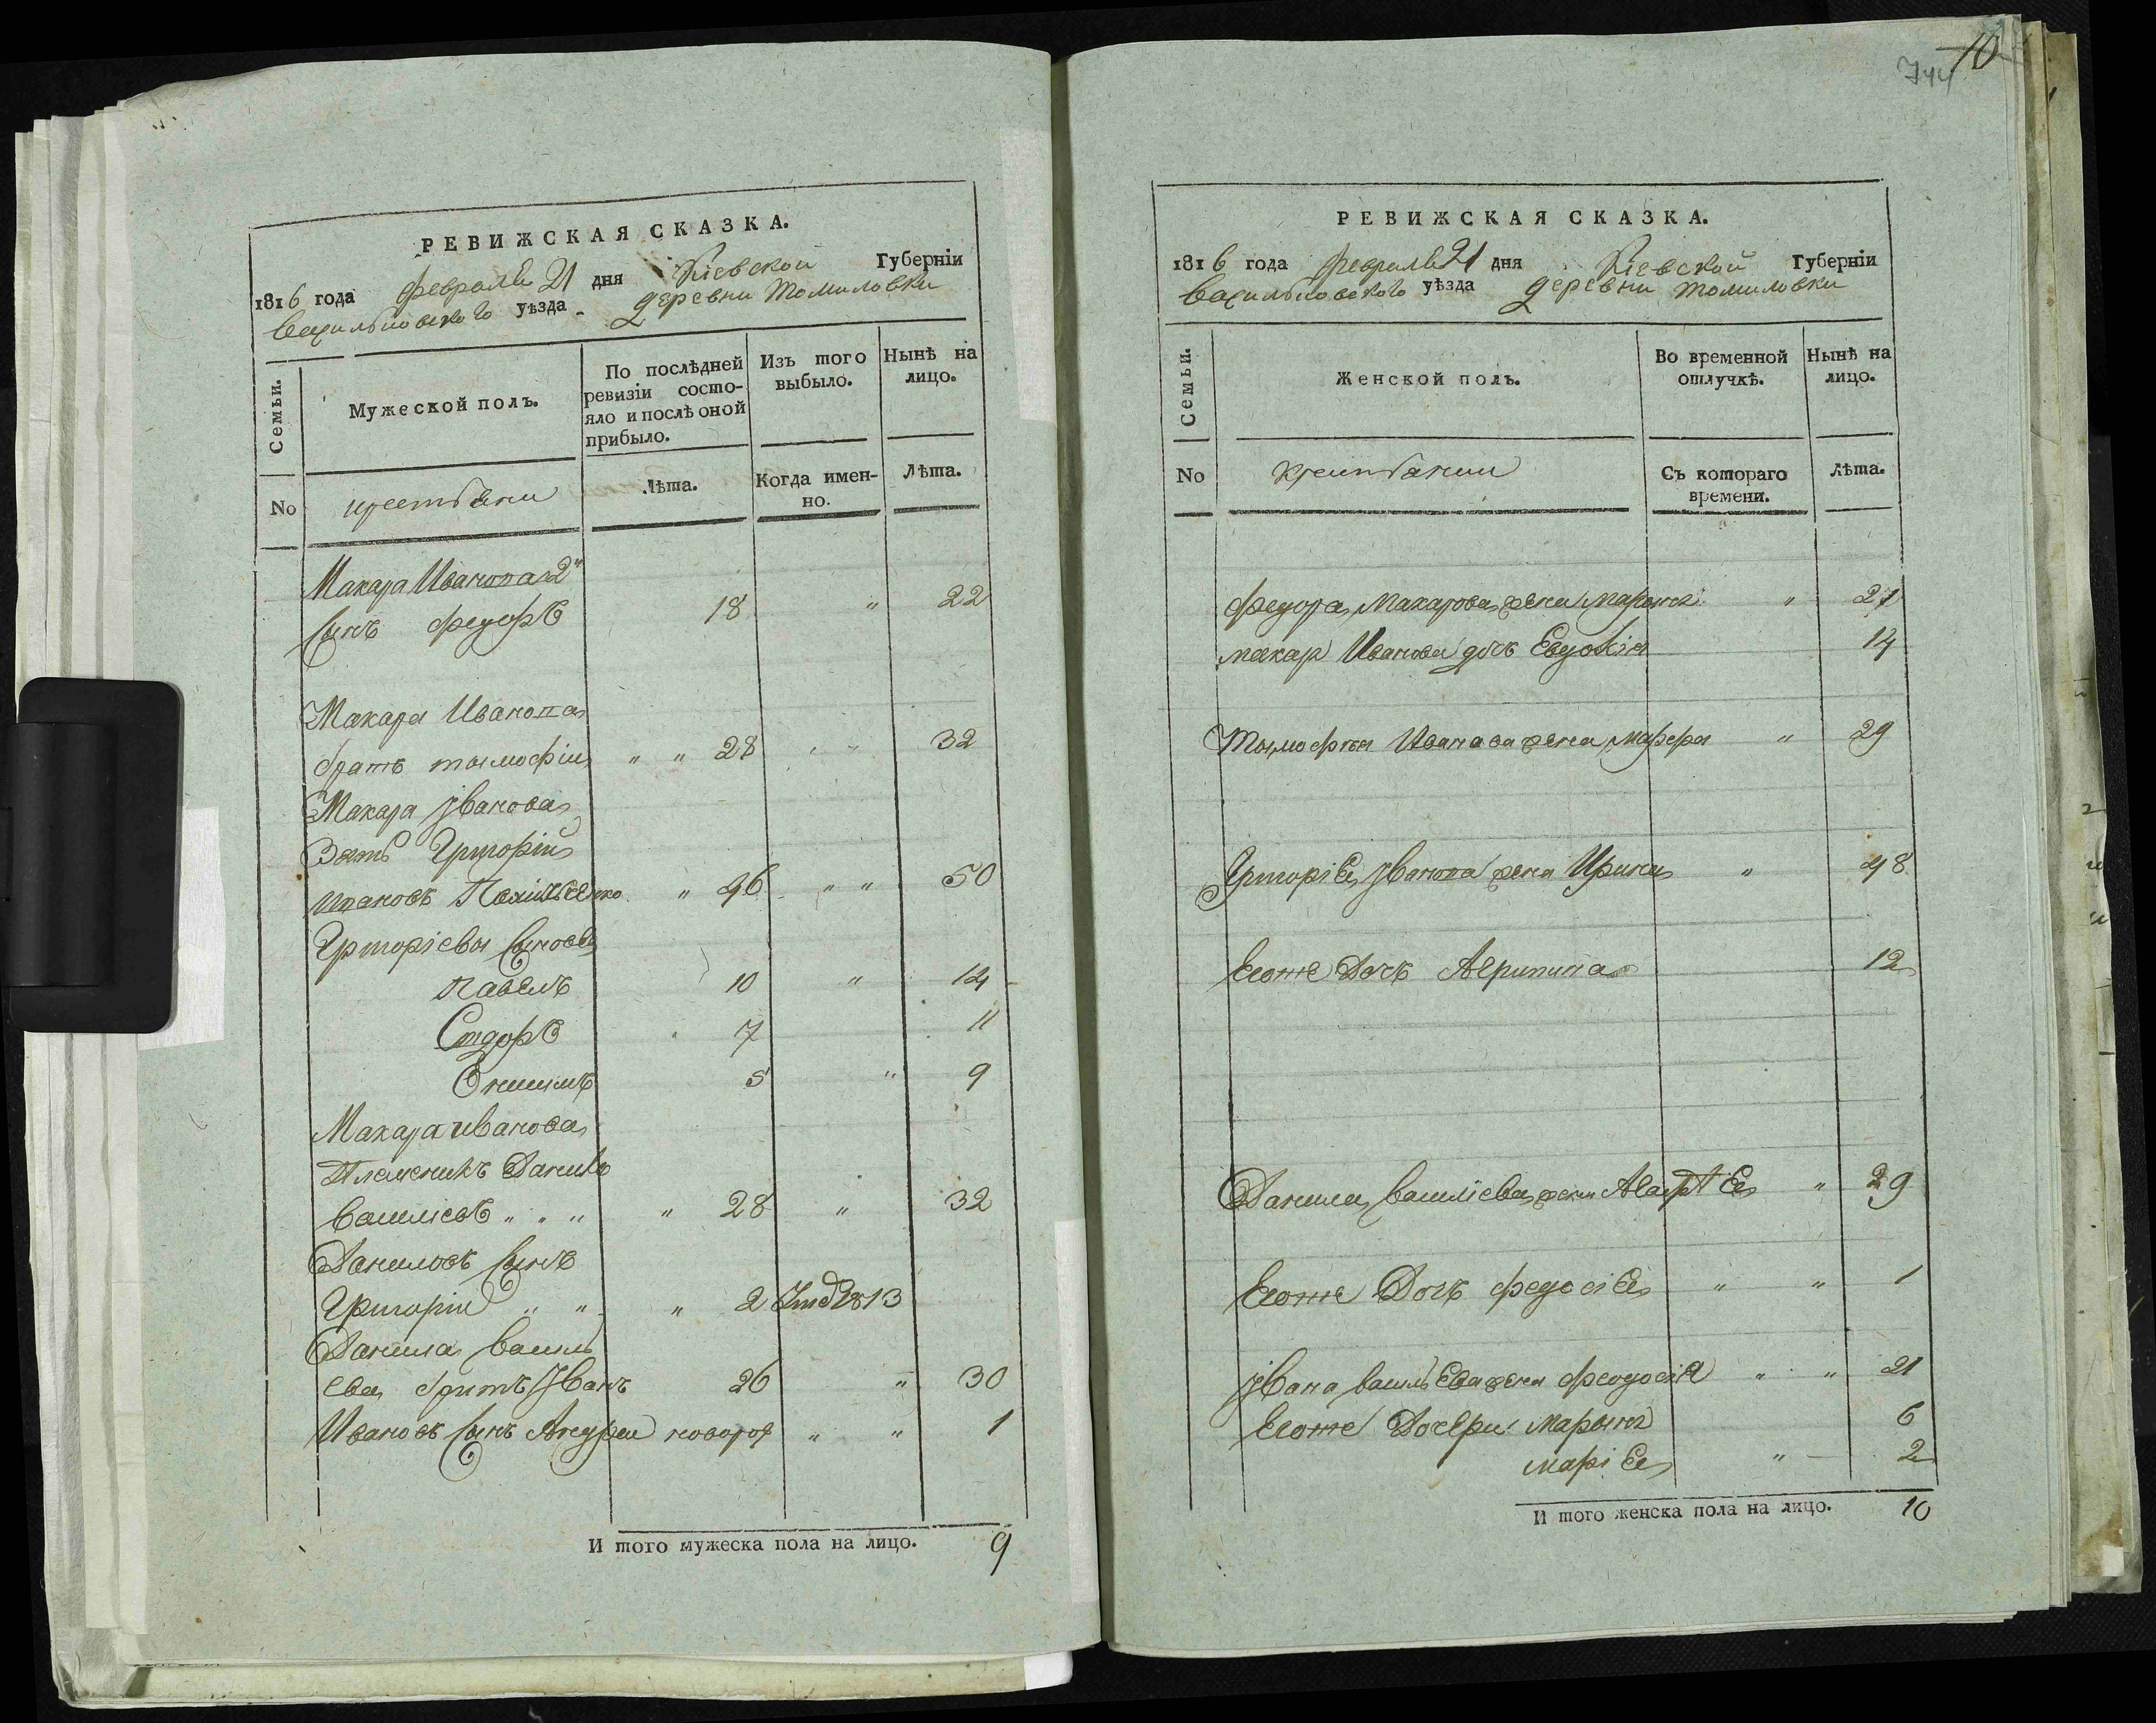 РЕВИЖСКАЯ СКАЗКА.
1816 года февраля 21 дня Кіевской Губерніи
Васильковского уѣзда деревни Томиловки
Семьи.
Мужеской полъ.
По послѣдней ревизіи состояло и послѣ оной прибыло.
Изъ того выбыло.
Нынѣ на лицо.
No
крестьяни
Лѣта.
Когда именно.
Лѣта.
Макара Иванова 2"
сынъ Федоръ 18 " 22
Макара Иванова
братъ тымофій " " 28 " " 32
Макара Іванова
Зять Григорій
Ивановъ " 46 " " 50
Григоріевы сыновья
Павелъ 10 " 14
Сидоръ 7 11
Онисимъ 5 " 9
Макара иванова
Племеникъ Данило
Василіевъ " " " " 28 " 32
Даниловъ сынъ
Григорій " " " 2 1813
Данила Василь
ева братъ Іванъ 26 " 30
Ивановъ сынъ Андрей новорож " " 1
И того мужеска пола на лицо. 9
10
744
РЕВИЖСКАЯ СКАЗКА.
1816 года февраля 21 дня Кіевской Губерніи
Васильковского уѣзда деревни Томиловки
Семьи.
Женской полъ.
Во временной отлучкѣ.
Нынѣ на лицо.
No
крестьянии
Съ котораго времени.
Лѣта.
Федора Макарова жена Марына " 21
макара Иванова дочь Евдокія 14
Тымофея Иванова жена Марфа " 29
Григорія Іванова жена Ирина " 48
Егоже Дочь Агрипина 12
Данила Василіева жена Агафія " 29
Егоже Дочь федосія " " 1
Івана Васильева жена феодосія " " 21
Егоже Дочери Марына 6
марія " 2
И того женска пола на лицо. 10